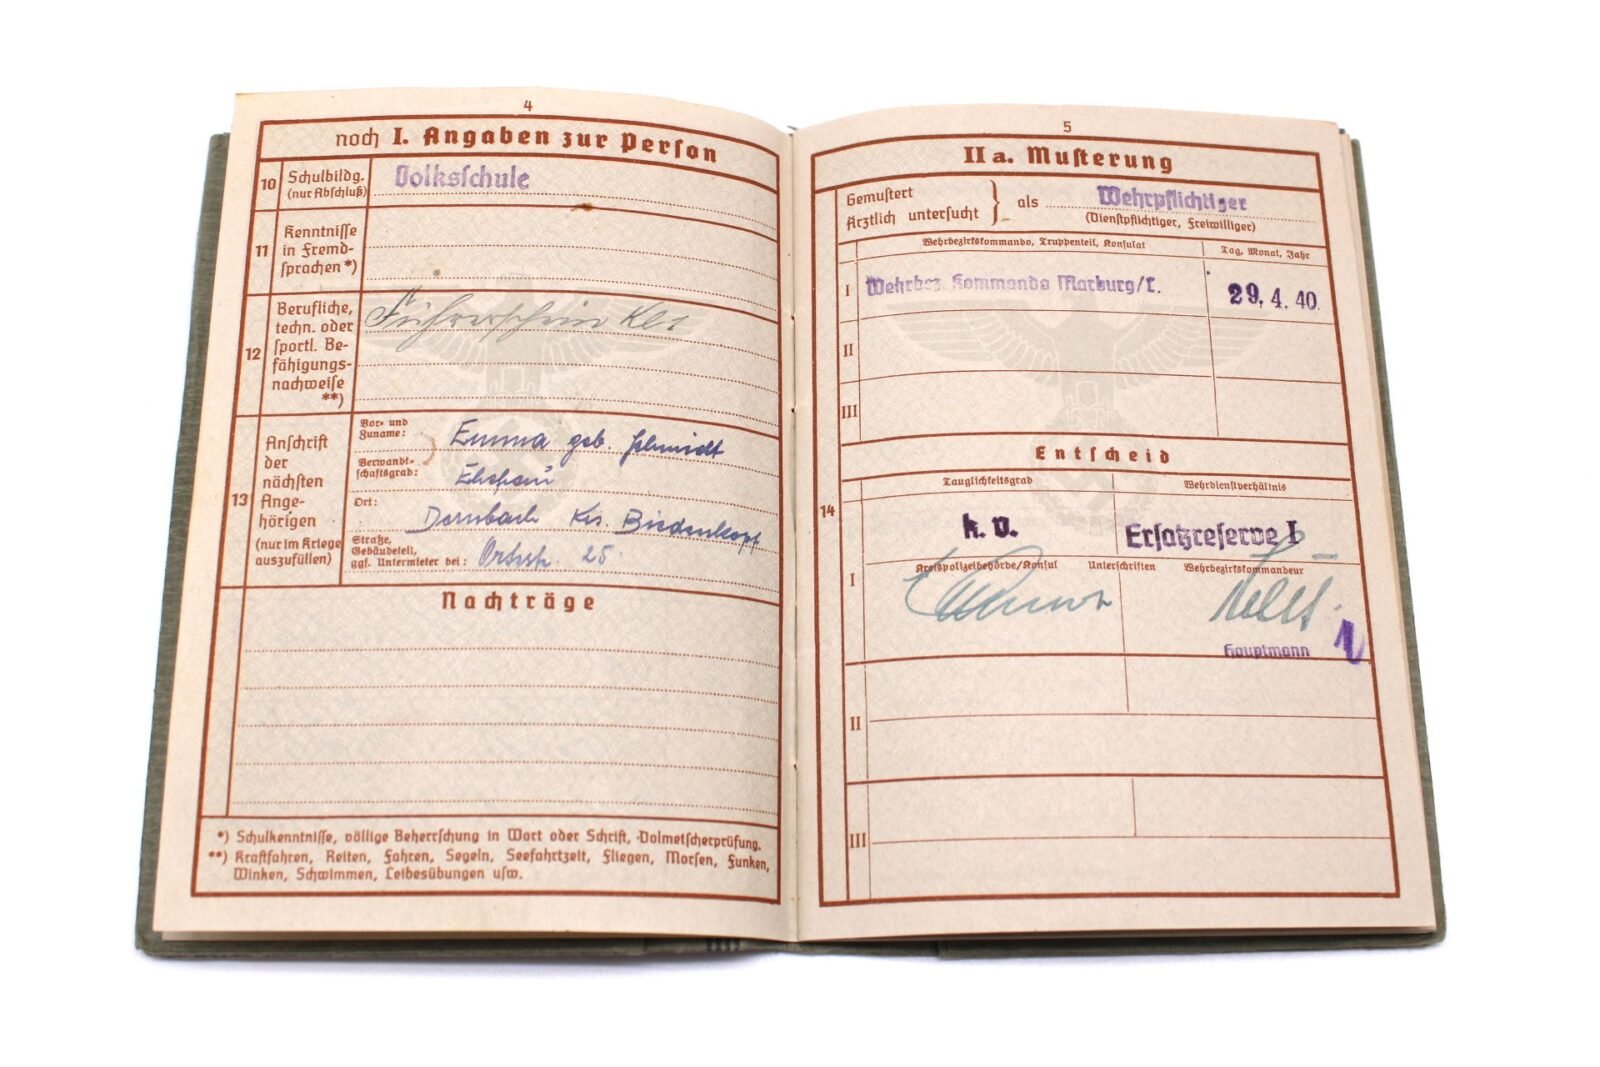 4
noch I. Angaben zur Person
10 Schulbildg. (nur Abschluß) Volksschule
11 Kenntnisse in Fremd-
sprachen *)
12 Berufliche, techn. oder sportl. Be-
fähigungs-
nachweise **)
Führerschein Kl 1
13 Anschrift der nächsten Ange-
hörigen
(nur im Kriege auszufüllen)
Vor- und Zuname: Emma geb. Schmidt
Verwandt-
schaftsgrad: Ehefrau
Ort: Dernbach Krs. Biedenkopf
Straße, Gebäudeteil, ggf. Untermieter bei: Ortsstr. 25.
Nachträge
*) Schulkenntnisse, völlige Beherrschung in Wort oder Schrift, Dolmetscherprüfung.
**) Kraftfahren, Reiten, Fahren, Segeln, Seefahrtzeit, Fliegen, Morsen, Funken,
Winken, Schwimmen, Leibesübungen usw.
5
II a. Musterung
Gemustert
Ärztlich untersucht } als Wehrpflichtiger
(Dienstpflichtiger, Freiwilliger)
Wehrbezirkskommando, Truppenteil, Konsulat
Tag, Monat, Jahr
I Wehrbez. Kommando Marburg/L. 29. 4. 40.
II
III
Entscheid
14
Tauglichkeitsgrad Wehrdienstverhältnis
k. v. Ersatzreserve I
I Kreispolizeibehörde/Konsul Unterschriften Wehrbezirkskommandeur
Hauptmann
II
III